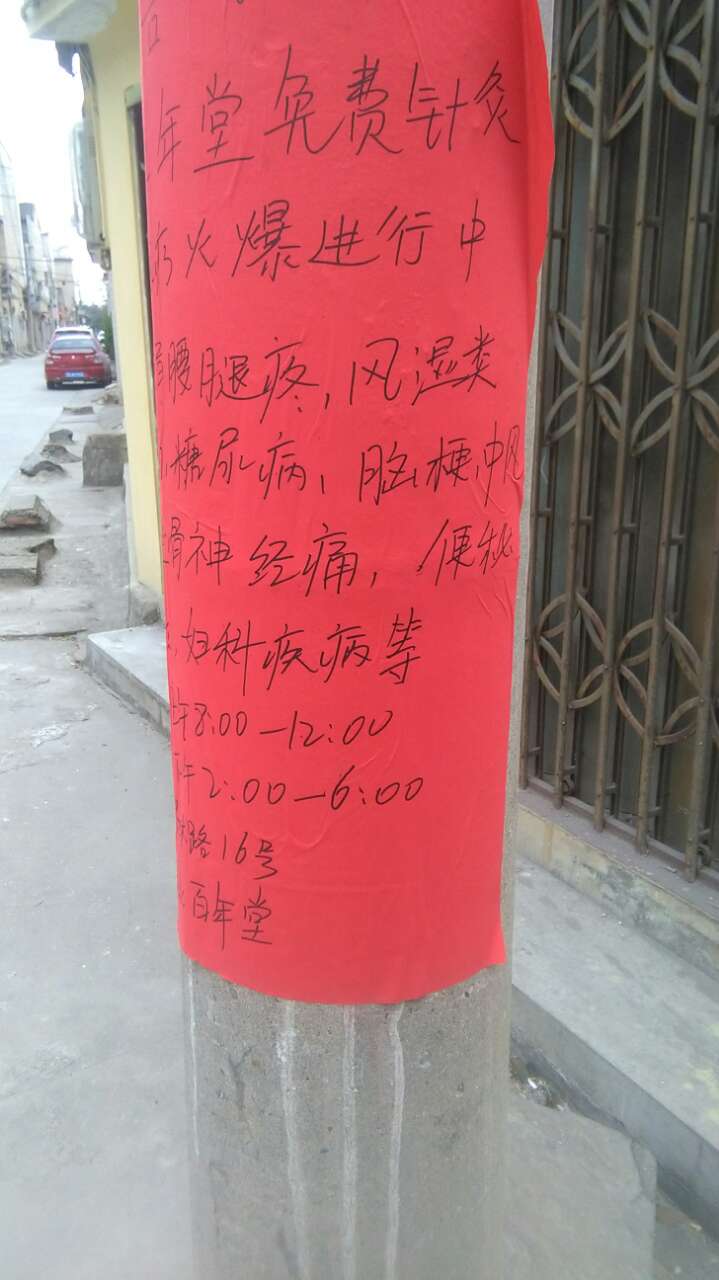 年堂免费针灸
火爆进行中
腰腿疼,风湿类
糖尿病、脑梗,中风
骨神经痛,便秘
妇科疾病等
上午8:00—12:00
下午2:00—6:00
路16号
百年堂